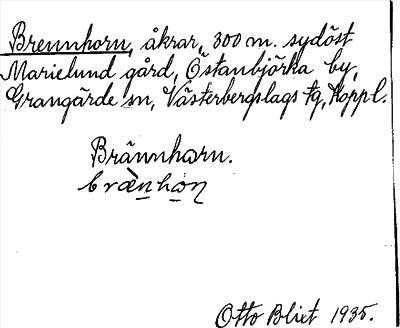 Brennhorn, åkrar, 300 m. sydöst
Marielund gård, Östanbjörka by,
Grangärde sn, Västerbergslags tg, Koppl.
Brännhorn.
bræ̀nhon
Otto Blixt 1935.